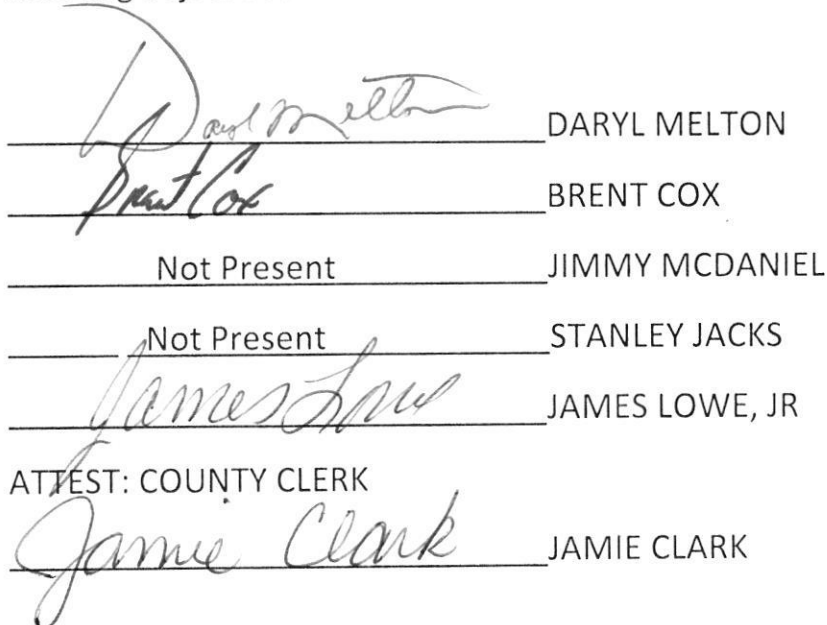 Daryl Melton DARYL MELTON
Brent Cox BRENT COX
Not Present JIMMY MCDANIEL
Not Present STANLEY JACKS
James Lowe JAMES LOWE, JR
ATTEST: COUNTY CLERK
Jamie Clark JAMIE CLARK